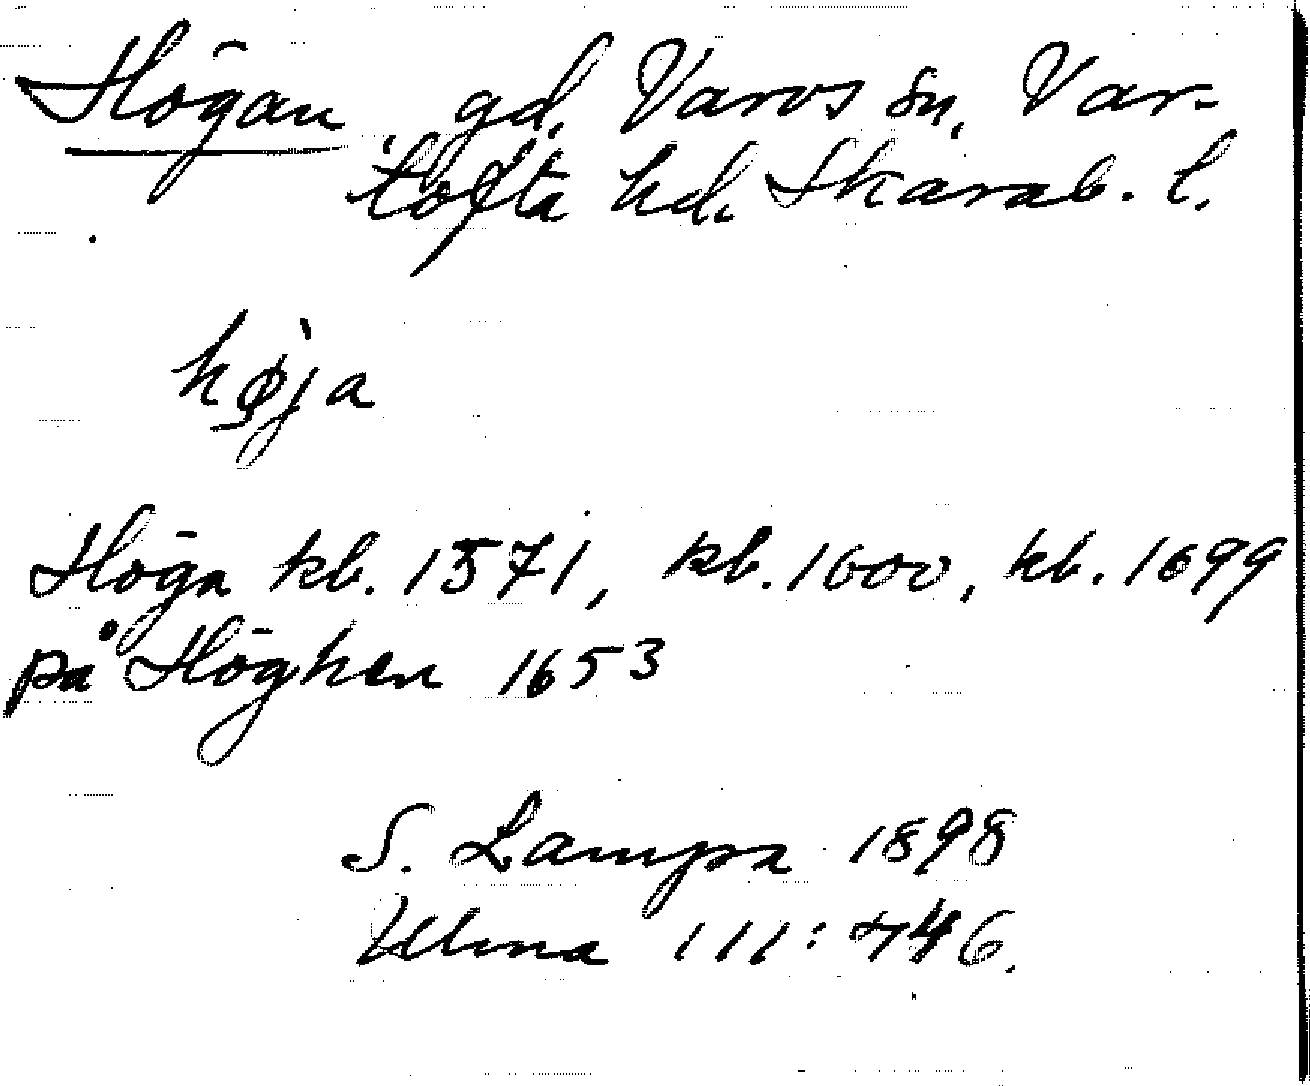 Högan gd, Varvs sn, Var-
tofta hd. Skarab. l.
hø̀ja
Höga kb. 1571, kb. 1600, kb. 1699
på Höghen 1653
S. Lampa 1898
Ulma 111:446.